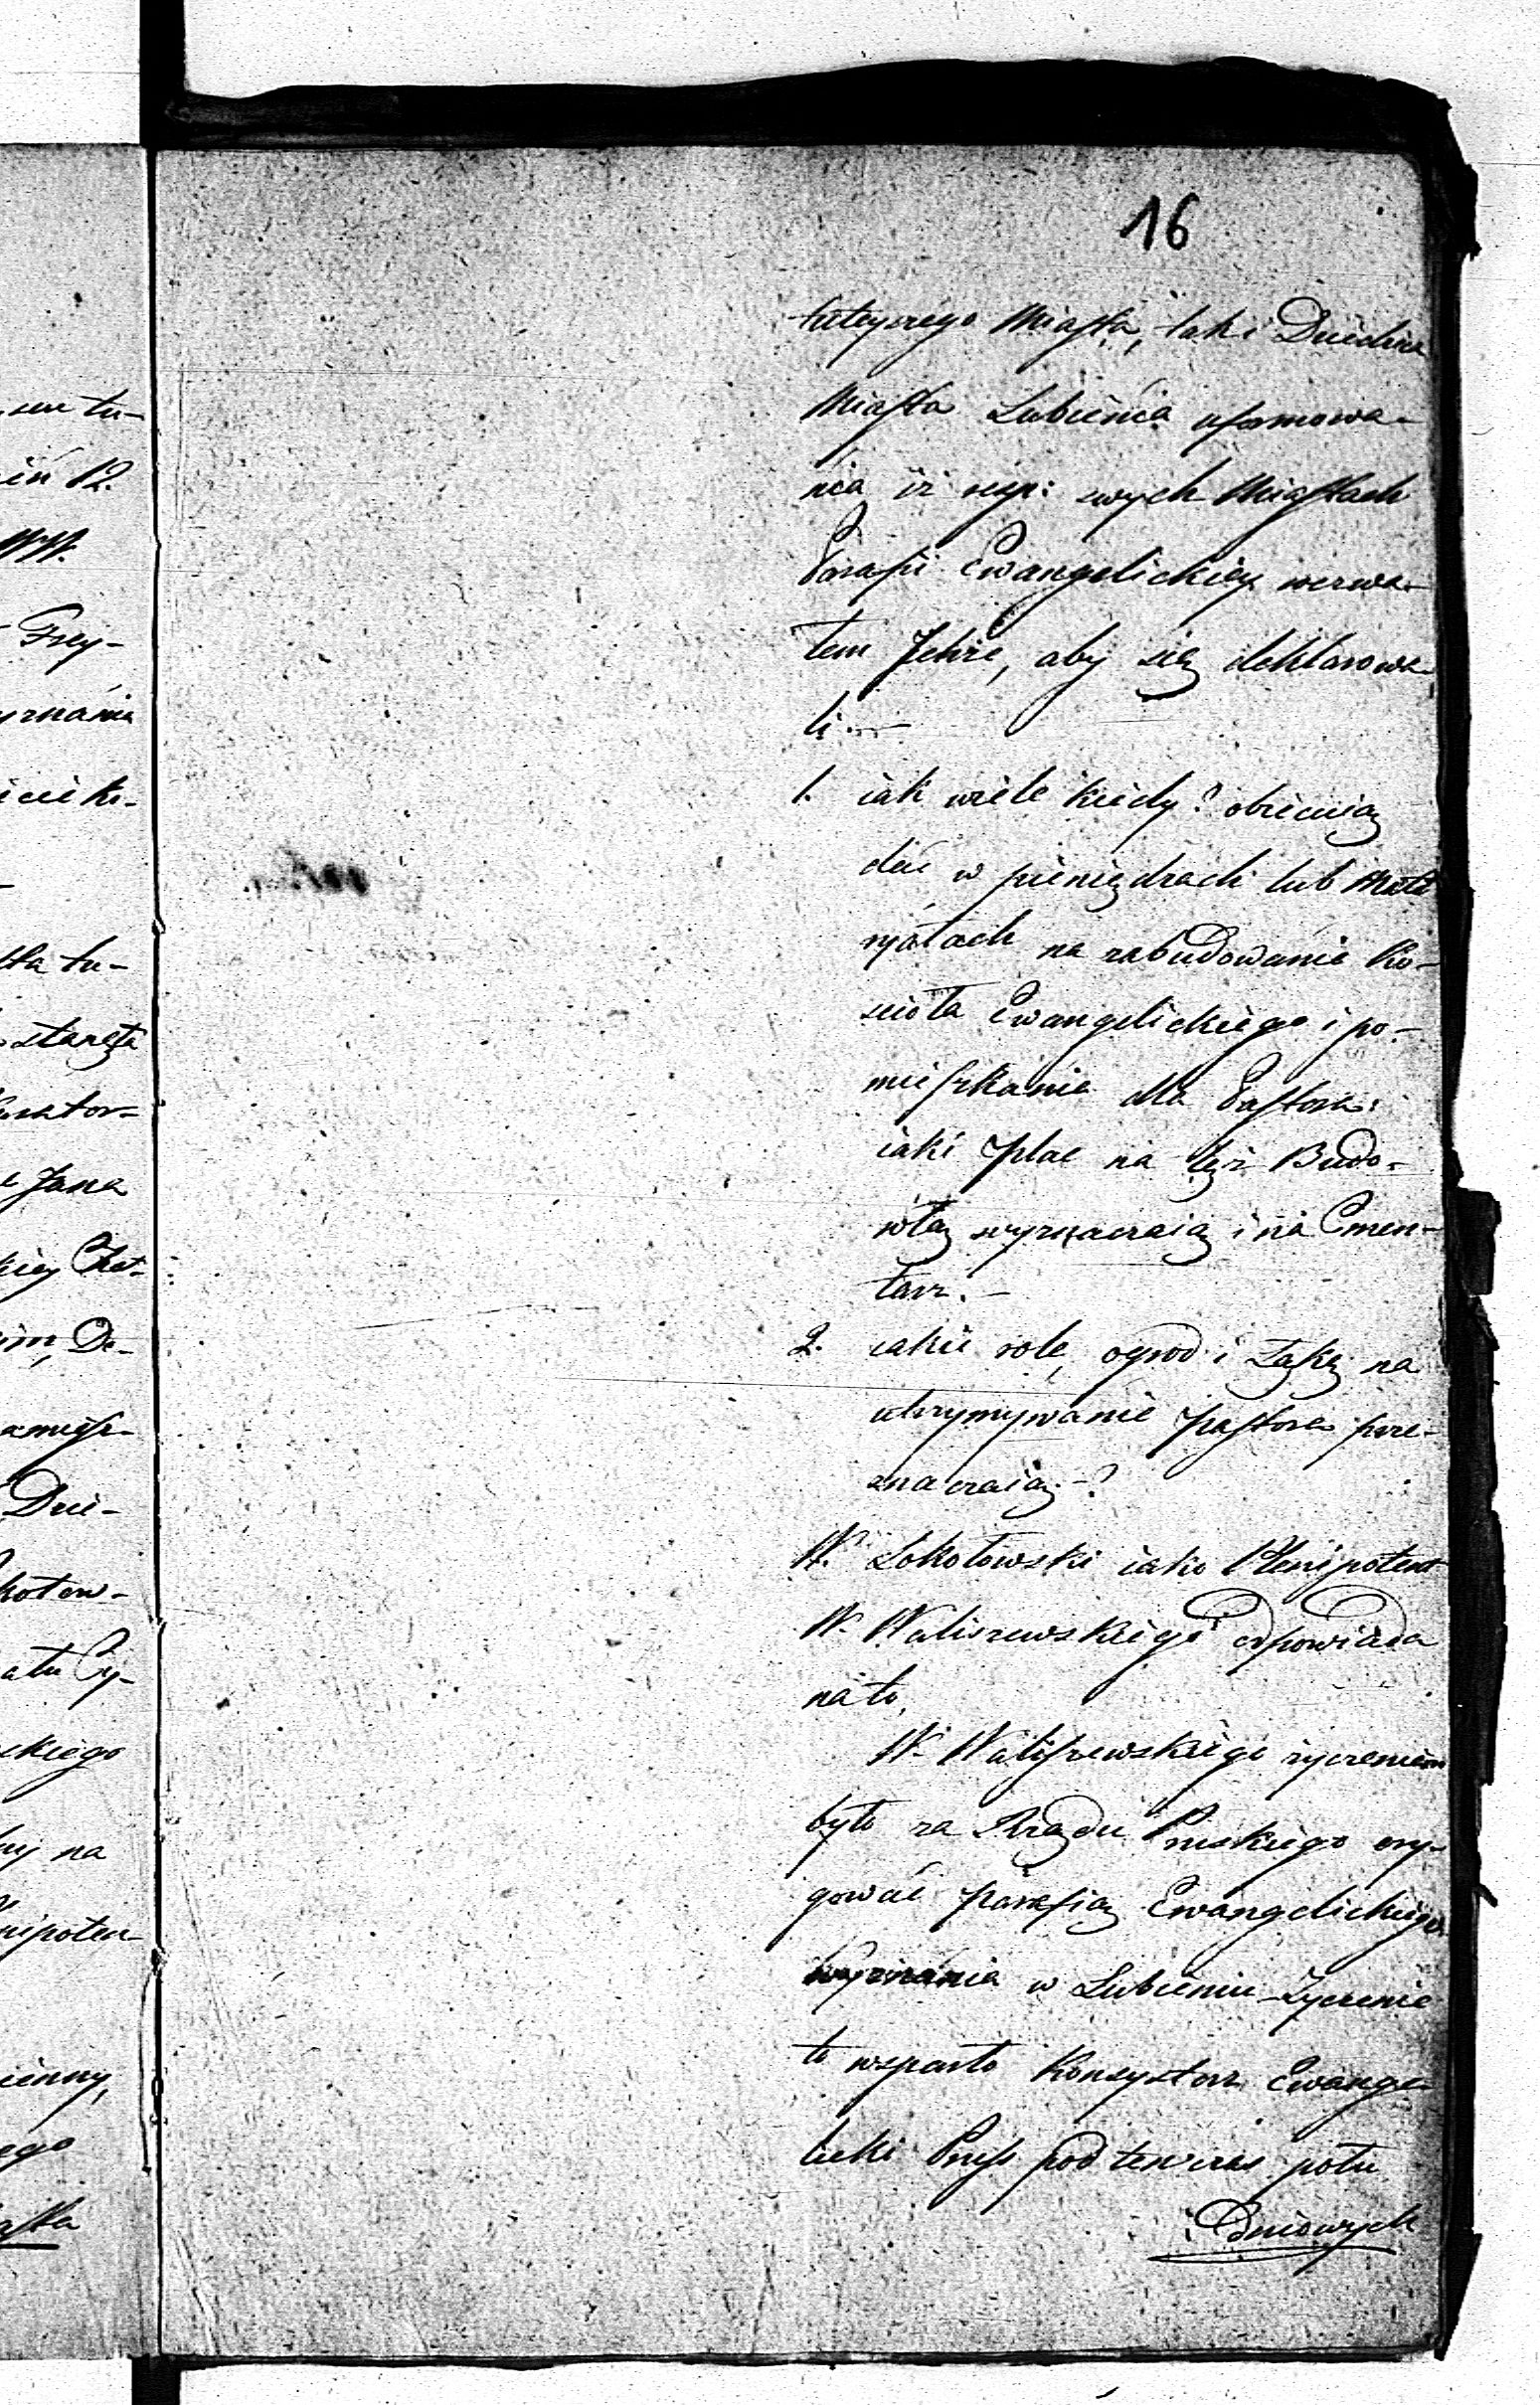 16
tuteyszego Miasta, tak i Dziedzica
Miasta Lubienia uformowa-
nia w resp: swych Miastach
Parafii Ewangelickiey wezwa-
łem Ichże, aby się deklarowa-
li. —
1. iak wiele kiedy? obiecuią
dać w pieniędzach lub Mate
ryałach na zabudowanie Ko-
scioła Ewangelickiego i po-
mieszkanie dla Pastora:
iaki plac na tęż Budo-
wlą wyznaczaią i na Cmen-
tarz. —
2. iakie role, ogrod i Łąkę na
utrzymywanie pastora prze-
znaczaią —?
W. Sokołowski iako Plenipotent
W. Waliszewskiego odpowiada
na to,
W. Waliszewskiego życzeniem
było za Rządu Pruskiego ery-
gować parafią Ewangelickiego
wyznania w Lubieniu — Życzenie
to wsparto Konsystorz Ewange-
licki Prusk pod ten czas połu
dniowych
su tu-
12.
WW.
Frey-
yznania
sta tu-
starszta
rator-
Jana
kiey
im, De-
Dzie-
kołow-
atu Py-
ckiego
na
nipoten-
ienny,
ego
asta